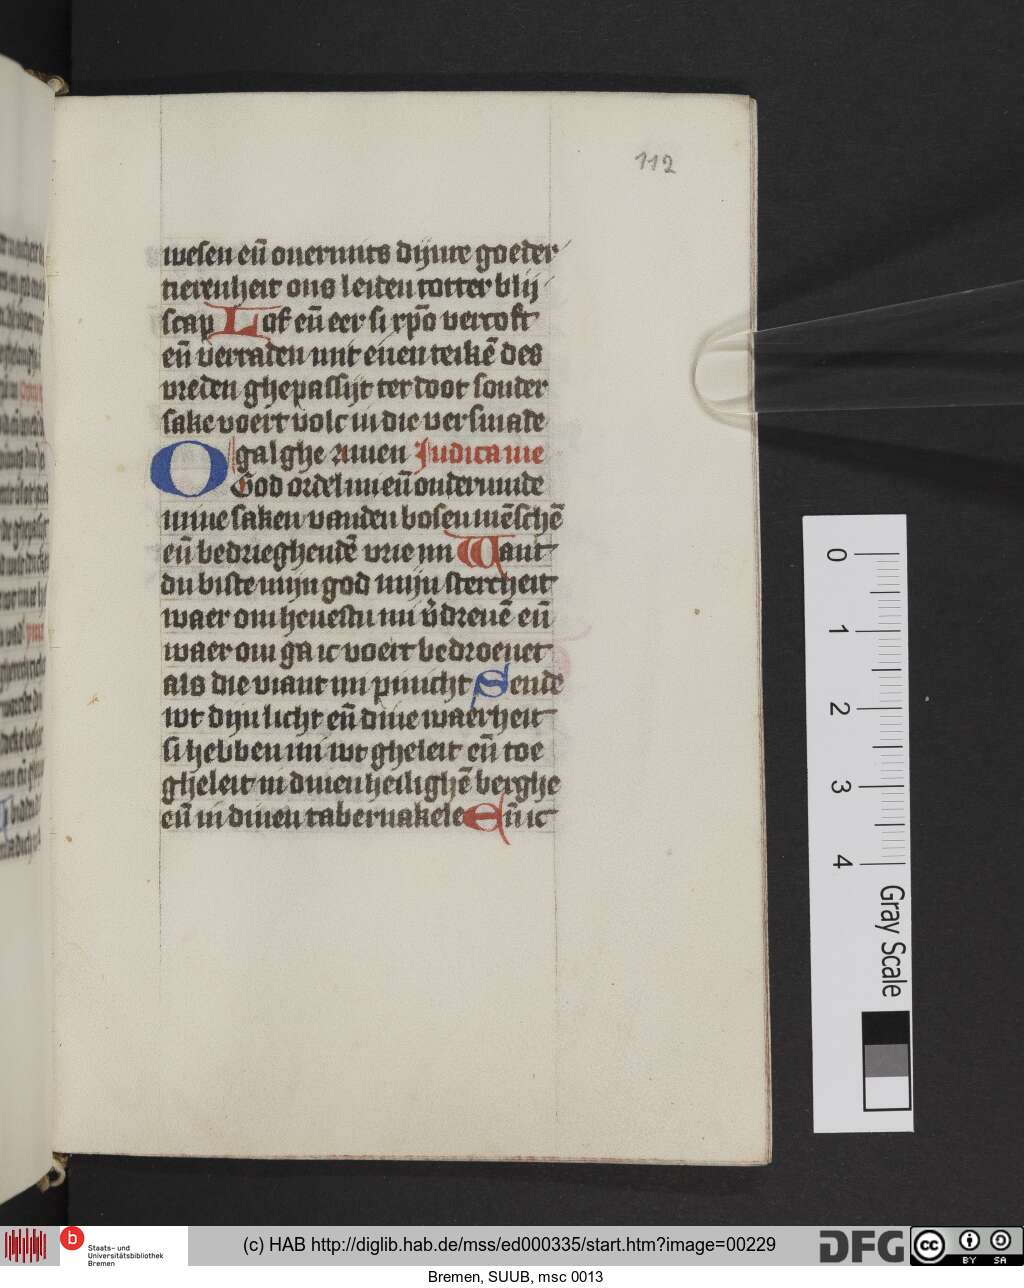 112
wesen eñ ouermits dijnre goeder
tierenheit ons leiden totter blij
scap Lof eñ eer si xp̄o vercoft
eñ verraden mit enen teikē des
vreden ghepassijt ter doot sonder
sake voert volc in die versmade
galghe Amen Judica me
O God ordel mi eñ ondermide
mine saken vanden bosen mēschē
eñ bedrieghendē vrie mi Want
du biste mijn god mijn stercheit
waer om heuestu mi v̄dreuē eñ
waer om ga ic voert bedroeuet
als die viant mi pinicht Sende
wt dijn licht eñ dine waerheit
si hebben mi wt gheleit eñ toe
gheleit in dinen heilighē berghe
eñ in dinen tabernakele Eñ ic
0
1
2
3
4
Gray Scale
b
Staats- und
Universitätsbibliothek
Bremen
(c) HAB http://diglib.hab.de/mss/ed000335/start.htm?image=00229
DFG
cc
BY SA
Bremen, SUUB, msc 0013